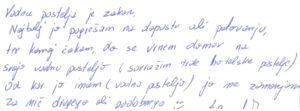 Vodna postelja je zakon.
Najbolj jo pogrešam na dopustu ali potovanju,
ter komaj čakam, da se vrnem domov na
svojo vodno posteljo (sovražim tiste hotelske postelje)
Od kar jo imam (vodno posteljo) je ne zamenjam
za nič drugega ali podobnega